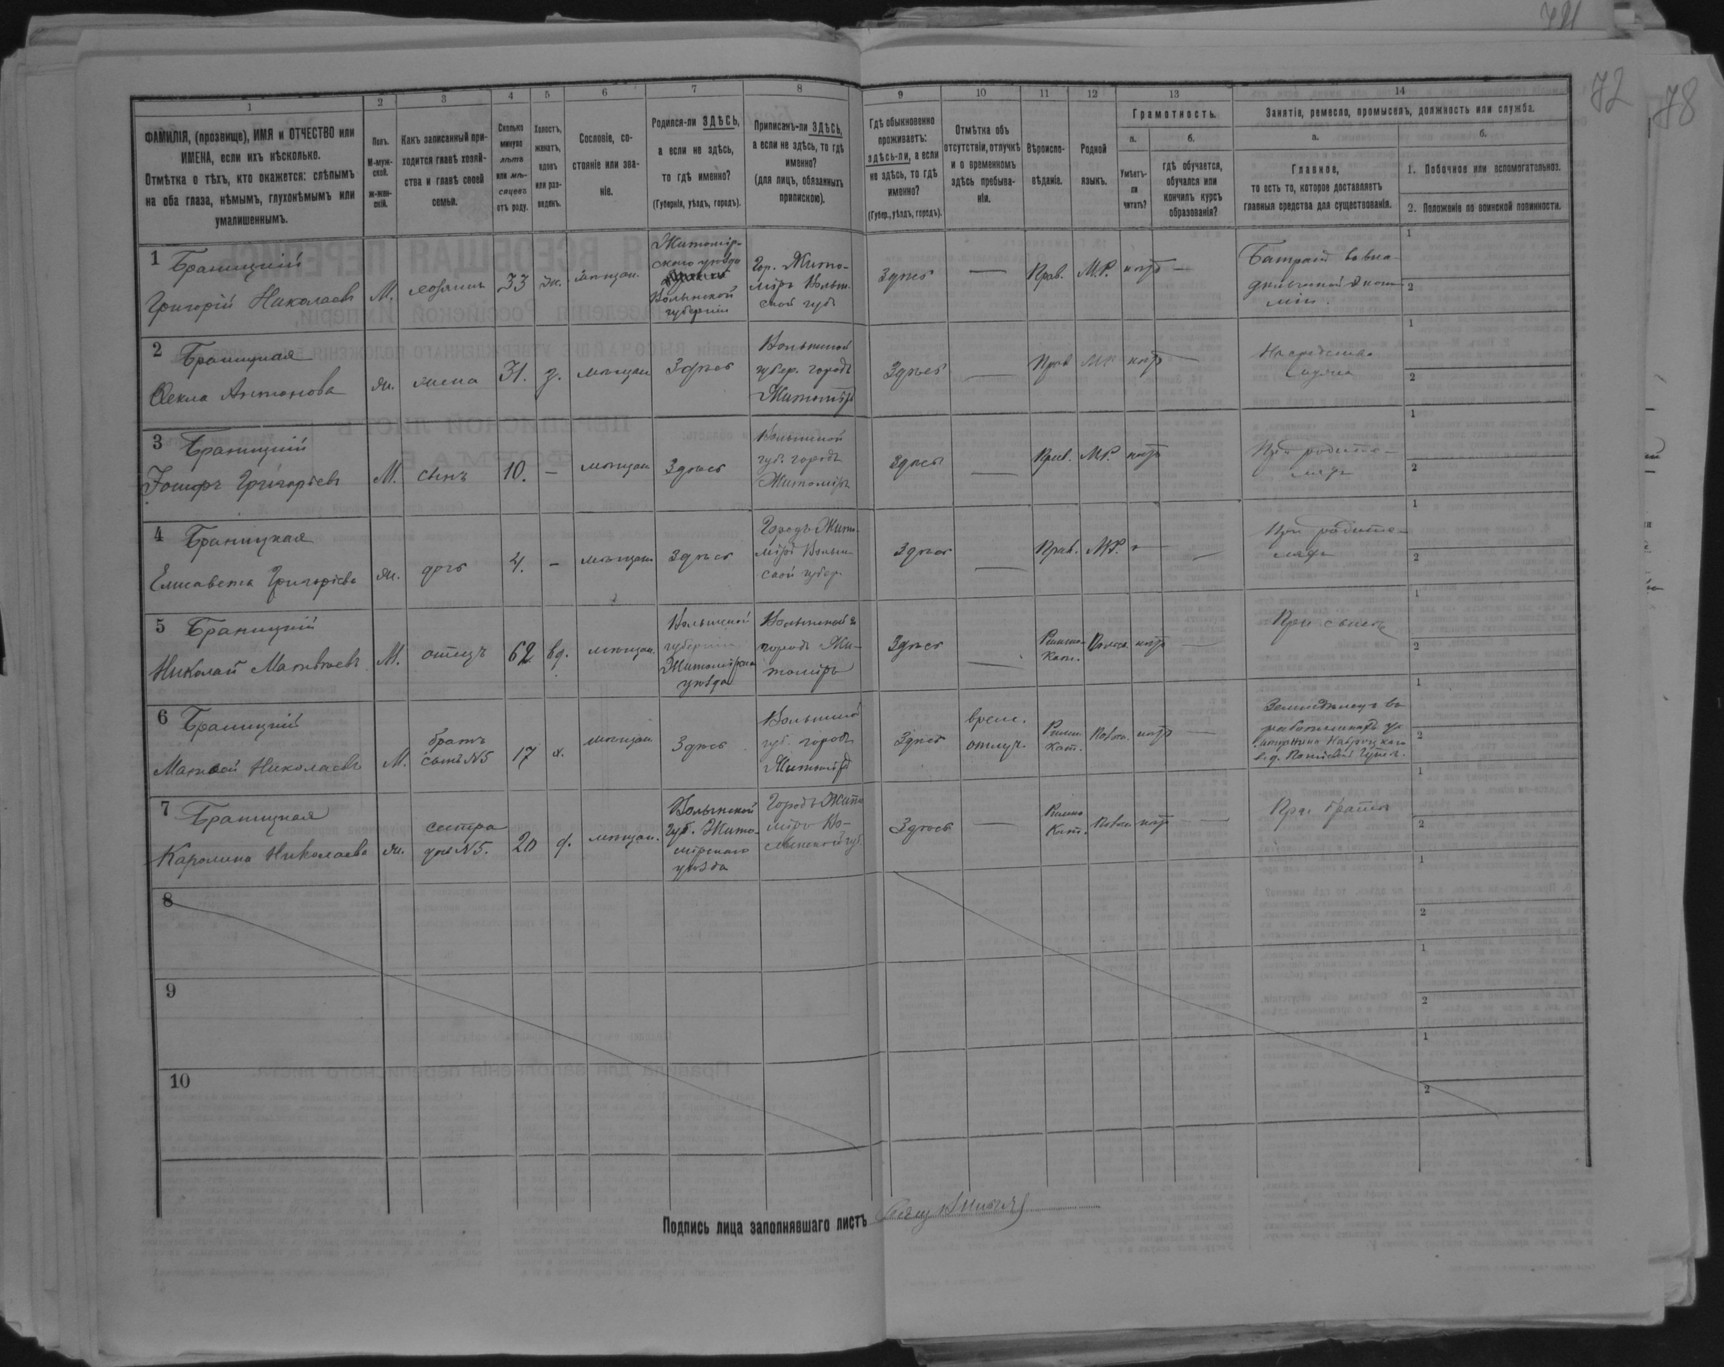 72
78
1 2 3 4 5 6 7 8 9 10 11 12 13 14
ФАМИЛІЯ, (прозвище), ИМЯ и ОТЧЕСТВО или
ИМЕНА, если ихъ нѣсколько.
Отмѣтка о тѣхъ, кто окажется: слѣпымъ
на оба глаза, нѣмымъ, глухонѣмымъ или
умалишеннымъ.
Полъ.
М-муж-
ской.
ж-жен-
скій.
Какъ записанный при-
ходится главѣ хозяй-
ства и главѣ своей
семьи.
Сколько
минуло
лѣтъ
или мѣ-
сяцевъ
отъ роду.
Холостъ,
женатъ,
вдовъ
или раз-
веденъ.
Сословіе, со-
стояніе или зва-
ніе.
Родился-ли ЗДѢСЬ,
а если не здѣсь,
то гдѣ именно?
(Губернія, уѣздъ, городъ).
Приписанъ-ли ЗДѢСЬ,
а если не здѣсь, то гдѣ
именно?
(для лицъ, обязанныхъ
припискою).
Гдѣ обыкновенно
проживаетъ:
здѣсь-ли, а если
не здѣсь, то гдѣ
именно?
(Губер., уѣздъ, городъ).
Отмѣтка объ
отсутствіи, отлучкѣ
и о временномъ
здѣсь пребыва-
ніи.
Вѣроиспо-
вѣданіе.
Родной
языкъ.
Грамотность.
а.
Умѣетъ-
ли
читать?
б.
гдѣ обучается,
обучался или
кончилъ курсъ
образованія?
Занятіе, ремесло, промыселъ, должность или служба.
а.
Главное,
то есть то, которое доставляетъ
главныя средства для существованія.
б.
1. Побочное или вспомогательное.
2. Положеніе по воинской повинности.
1 Браницкій
Григорій Николаевъ
М. хозяинъ 33 ж. мѣщан.
Житомір-
скаго уѣзда
Волынской
губерніи
Гор. Жито-
міръ Волын-
ской губ.
Здѣсь — Прав. М.Р. нѣтъ —
1
2
2 Браницкая
Фекла Антонова
ж. жена 31. з. мѣщан. Здѣсь
Волынской
губер. городъ
Житоміръ
Здѣсь — Прав. М.Р. нѣтъ —
1
2
3 Браницкій
Іосифъ Григорьевъ
М. сынъ 10. — мѣщан. Здѣсь
Волынской
губ. городъ
Житоміръ
Здѣсь — Прав. М.Р. нѣтъ
При родите-
ляхъ
1
2
4 Браницкая
Елисавета Григорьева
ж. дочь 4. — мѣщан. Здѣсь
Городъ Жито-
міръ Волын-
ской губер.
Здѣсь — Прав. М.Р. — —
При родите-
ляхъ
1
2
5 Браницкій
Николай Матвѣевъ
М. отецъ 62 вд. мѣщан.
Волынской
губерніи
Житомірскаго
уѣзда
Волынской г.
городъ Жи-
томіръ
Здѣсь —
Римско-
Кат.
Польск. нѣтъ —
При сынѣ
1
2
6 Браницкій
Матвѣй Николаевъ
М.
братъ
сынъ №5
17 х. мѣщан. Здѣсь
Волынской
губ. городъ
Житоміръ
Здѣсь
врем.
отлуч.
Римско-
Кат.
Польск. нѣтъ —
1
2
7 Браницкая
Каролина Николаева
ж.
сестра
дочь №5.
20 д. мѣщан.
Волынской
губ. Жито-
мірскаго
уѣзда
Городъ Жито-
міръ Во-
лынской губ.
Здѣсь —
Римско
Кат.
Польск. нѣтъ —
При братѣ
1
2
8
1
2
9
1
2
10
1
2
Подпись лица заполнявшаго листъ